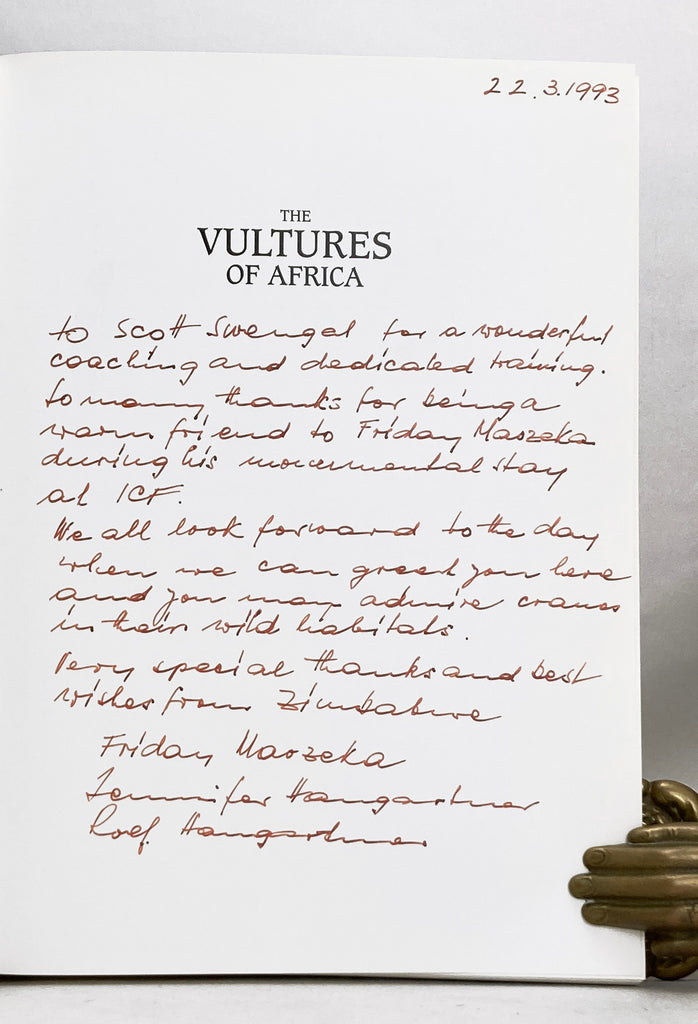 22.3.1993
THE
VULTURES
OF AFRICA
to Scott Swengel for a wonderful
coaching and dedicated training.
So many thanks for being a
warm friend to Friday Maozeka
during his monumental stay
at ICF.
We all look forward to the day
when we can greet you here
and you may admire cranes
in their wild habitats.
Very special thanks and best
wishes from Zimbabwe
Friday Maozeka
Jennifer Hangartner
Rolf Hangartner